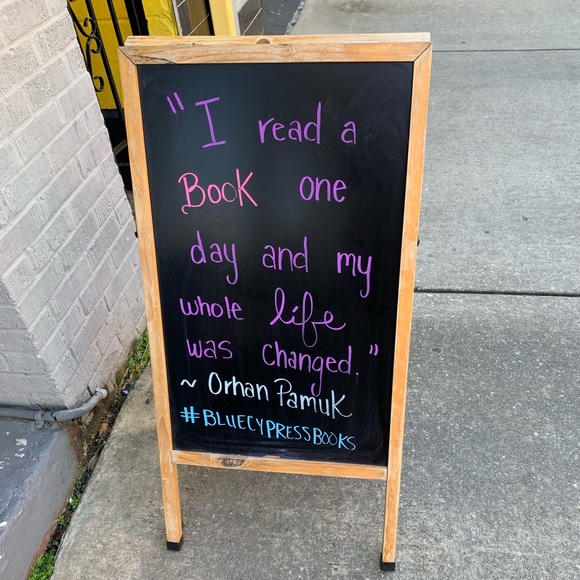 "I read a
Book one
day and my
whole life
was changed."
~ Orhan Pamuk
#BLUECYPRESSBOOKS